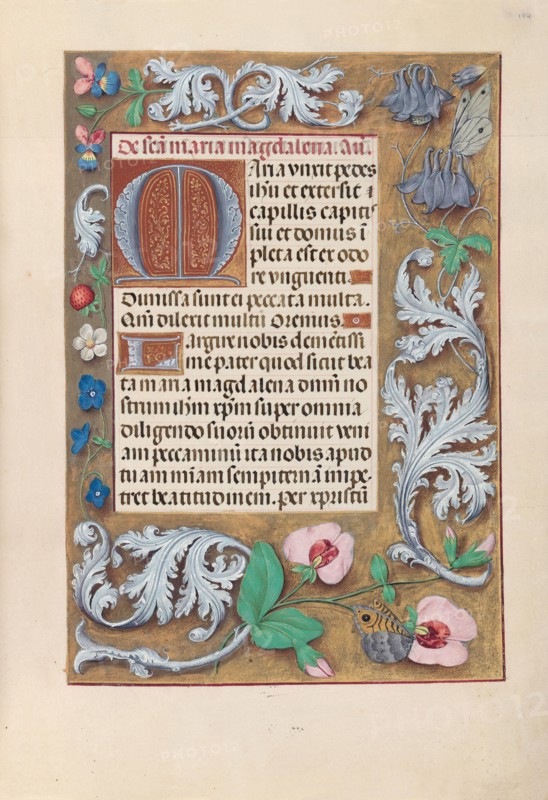 De scã maria magdalena. Añ.
Maria vnxit pedes
ihũ et extersit ⁊
capillis capitis
sui et domus ĩ
pleta est ex odo
re vnguenti.
Dimissa sunt ei peccata multa.
Qm̃ dilexit multũ Oremus.
Largire nobis clemẽtissi
me pater quod sicut bea
ta maria magdalena dnm̃ no
strum ihm̃ xp̃m super omnia
diligendo suorũ obtinuit veni
am peccaminũ ita nobis apud
tuam mĩam sempiternã impe
tret beatitudinem. per xpristũ
PHOTO12